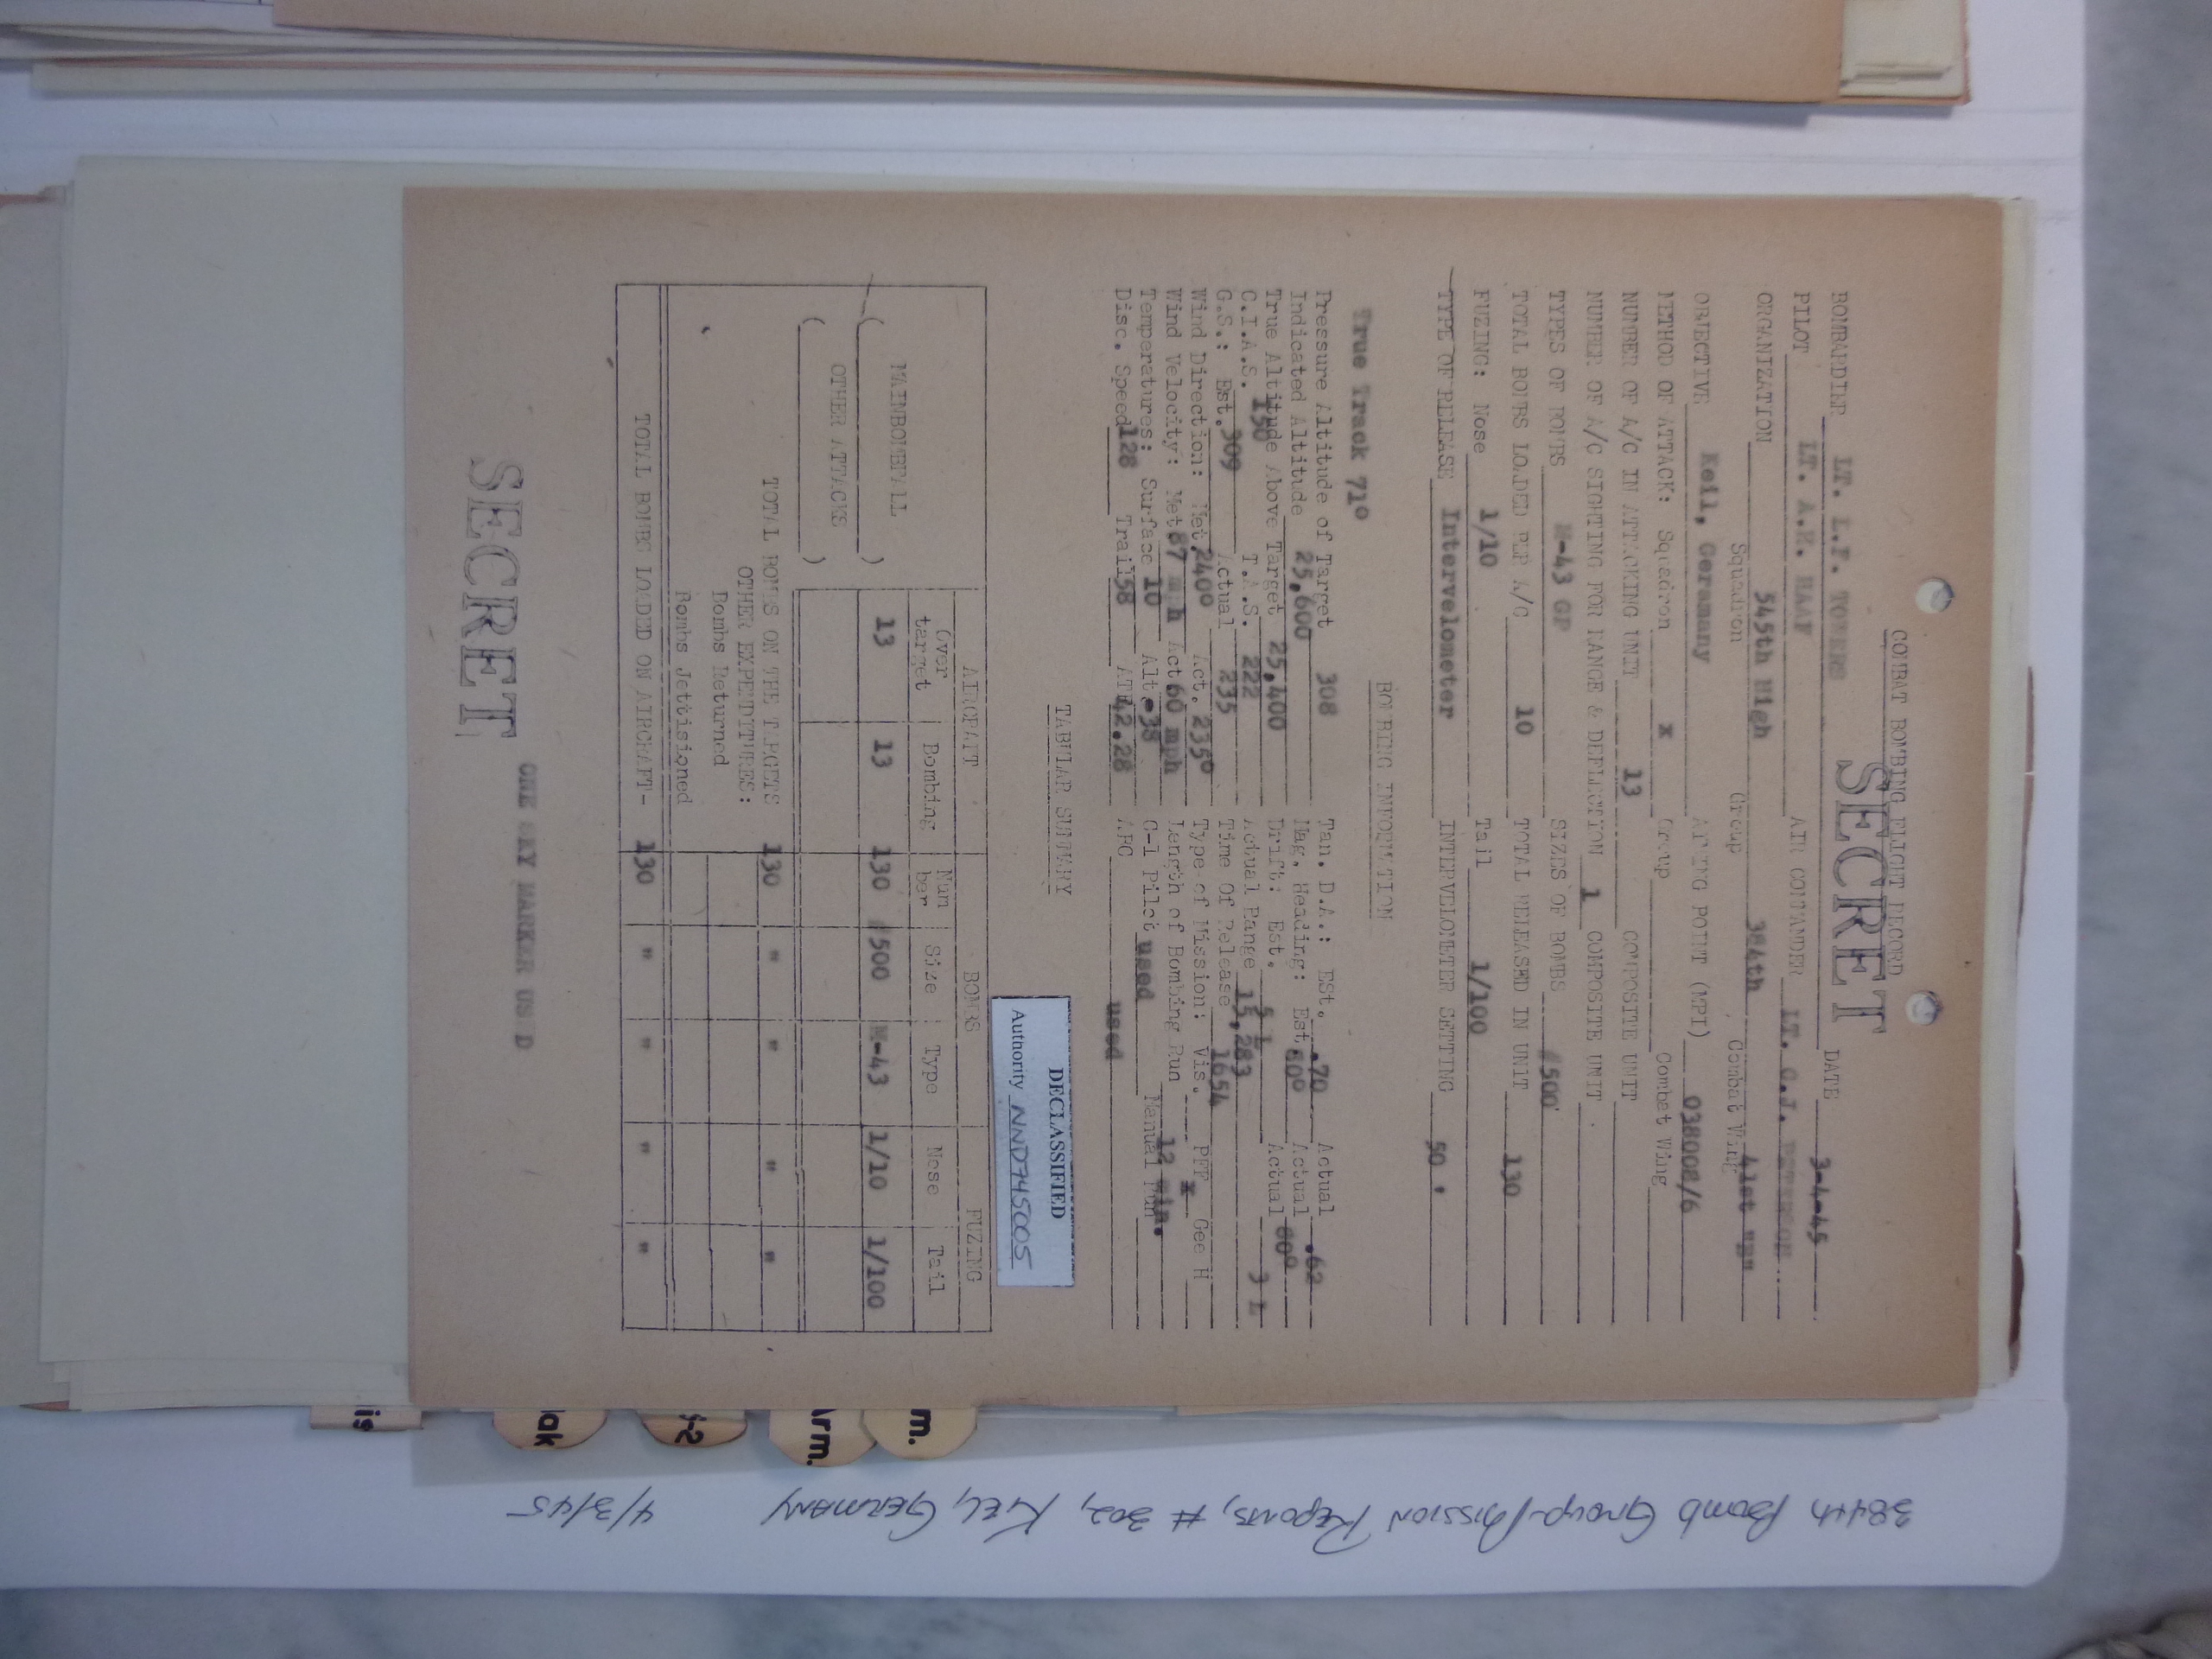 COMBAT BOMBING FLIGHT RECORD
SECRET
DATE 3-4-45
BOMBARDIER LT. L.F. TOWERS
PILOT LT. A.H. HAAF AIR COMMANDER LT. C.J. PETERSON
ORGANIZATION 545th High 384th 41st
Squadron Group Combat Wing
OBJECTIVE Keil, Geramany AIMING POINT (MPI) 038008/6
METHOD OF ATTACK: Squadron x Group Combat Wing
NUMBER OF A/C IN ATTACKING UNIT 13 COMPOSITE UNIT
NUMBER OF A/C SIGHTING FOR RANGE & DEFLECTION 1 COMPOSITE UNIT
TYPES OF BOMBS M-43 GP SIZES OF BOMBS #500
TOTAL BOMBS LOADED PER A/C 10 TOTAL RELEASED IN UNIT 130
FUZING: Nose 1/10 Tail 1/100
TYPE OF RELEASE Intervelometer INTERVELOMETER SETTING 50 '
BOMBING INFORMATION
True Track 71°
Pressure Altitude of Target 308 Tan. D.A.: Est. .70 Actual .62
Indicated Altitude 25,600 Mag. Heading: Est 80° Actual 80°
True Altitude Above Target 25,400 Drift: Est. 5 L Actual 3 L
C.I.A.S. 150 T.A.S. 222 Actual Range 15,283
G.S.: Est. 309 Actual 235 Time Of Release 1654
Wind Direction: Met. 240° Act. 235° Type of Mission: Vis. PFF x Gee H
Wind Velocity: Met 87 mph Act 60 mph Length of Bombing Run 12 min.
Temperatures: Surface 10 Alt. -38 C-1 Pilot used Manual Run
Disc. Speed 128 Trail 58 ATF 42.28 AFC used
TABULAR SUMMARY
DECLASSIFIED
Authority NND745005
AIRCRAFT BOMBS FUZING
Over target Bombing Num ber Size Type Nose Tail
( MAINBOMBFALL ) 13 13 130 #500 M-43 1/10 1/100
( OTHER ATTACKS )
TOTAL BOMBS ON THE TARGETS 130 " " " "
OTHER EXPENDITURES:
Bombs Returned
Bombs Jettisioned
TOTAL BOMBS LOADED ON AIRCRAFT- 130 " " " "
ONE SKY MARKER US D
SECRET
m.
Arm.
S-2
lak
is
384th Bomb Group-Mission Reports, #302, Kiel, Germany 4/3/45